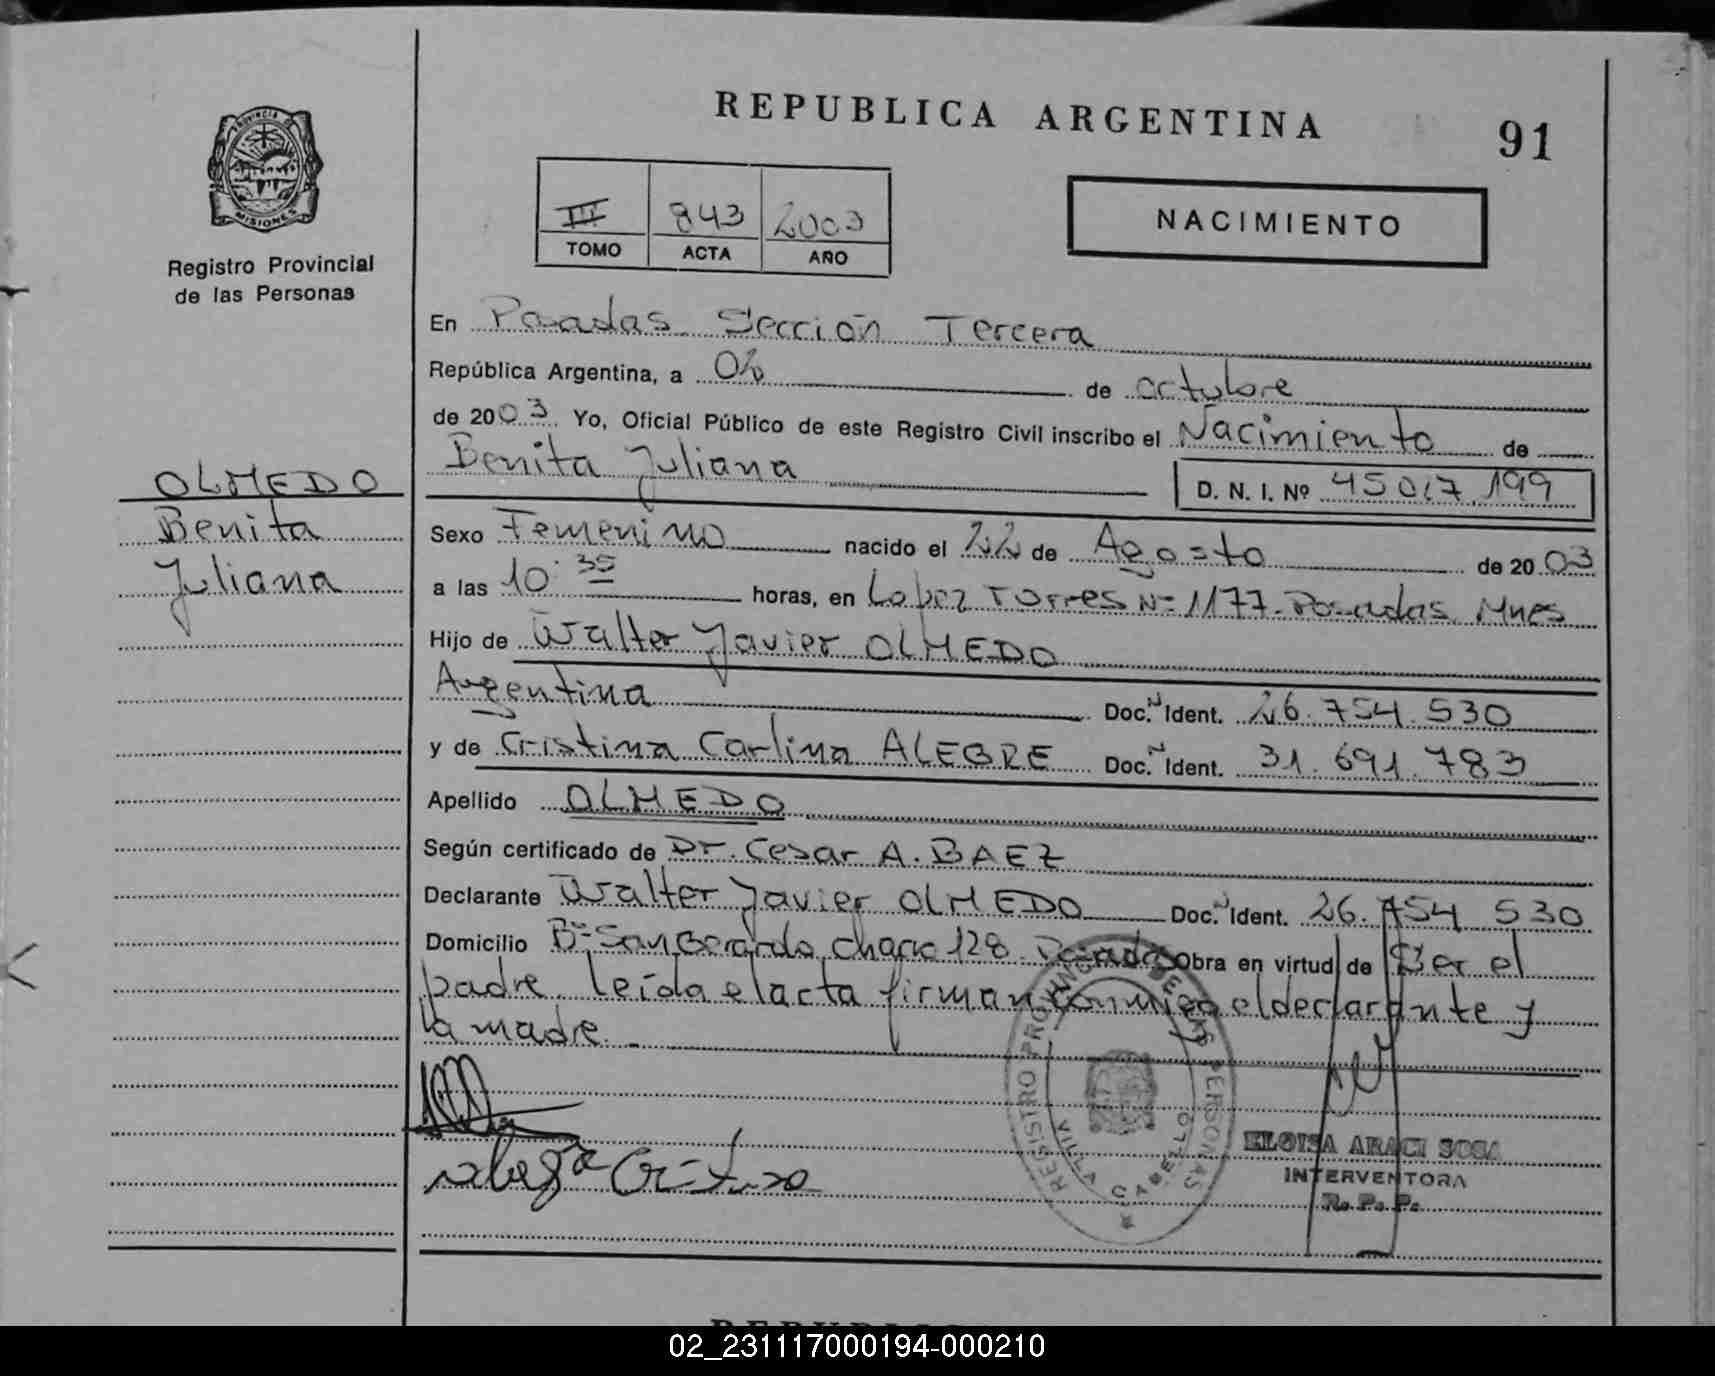 REPUBLICA ARGENTINA
91
PROVINCIA DE
MISIONES
Registro Provincial
de las Personas
III 843 2003
TOMO ACTA AÑO
NACIMIENTO
En Posadas Sección Tercera
República Argentina, a 02 de octubre
de 2003 Yo, Oficial Público de este Registro Civil inscribo el Nacimiento de
Benita Juliana D. N. I. Nº 45.017.199
OLMEDO
Benita
Juliana
Sexo Femenino nacido el 22 de Agosto de 2003
a las 10:35 horas, en Lopez Torres Nº 1177. Posadas. Mnes
Hijo de Walter Javier OLMEDO
Argentina Doc. Ident. 26.754.530
y de Cristina Carlina ALEGRE Doc. Ident. 31.691.783
Apellido OLMEDO
Según certificado de Dr. Cesar A. BAEZ
Declarante Walter Javier OLMEDO Doc. Ident. 26.754 530
Domicilio Bº San Gerardo, chacra 128. Posadas Obra en virtud de Ser el
padre. Leída el acta firman conmigo el declarante y
la madre.-
REGISTRO PROVINCIAL DE LAS PERSONAS
VILLA CABELLO
ELOISA ARACI SOSA
INTERVENTORA
R. P. P.
02_231117000194-000210